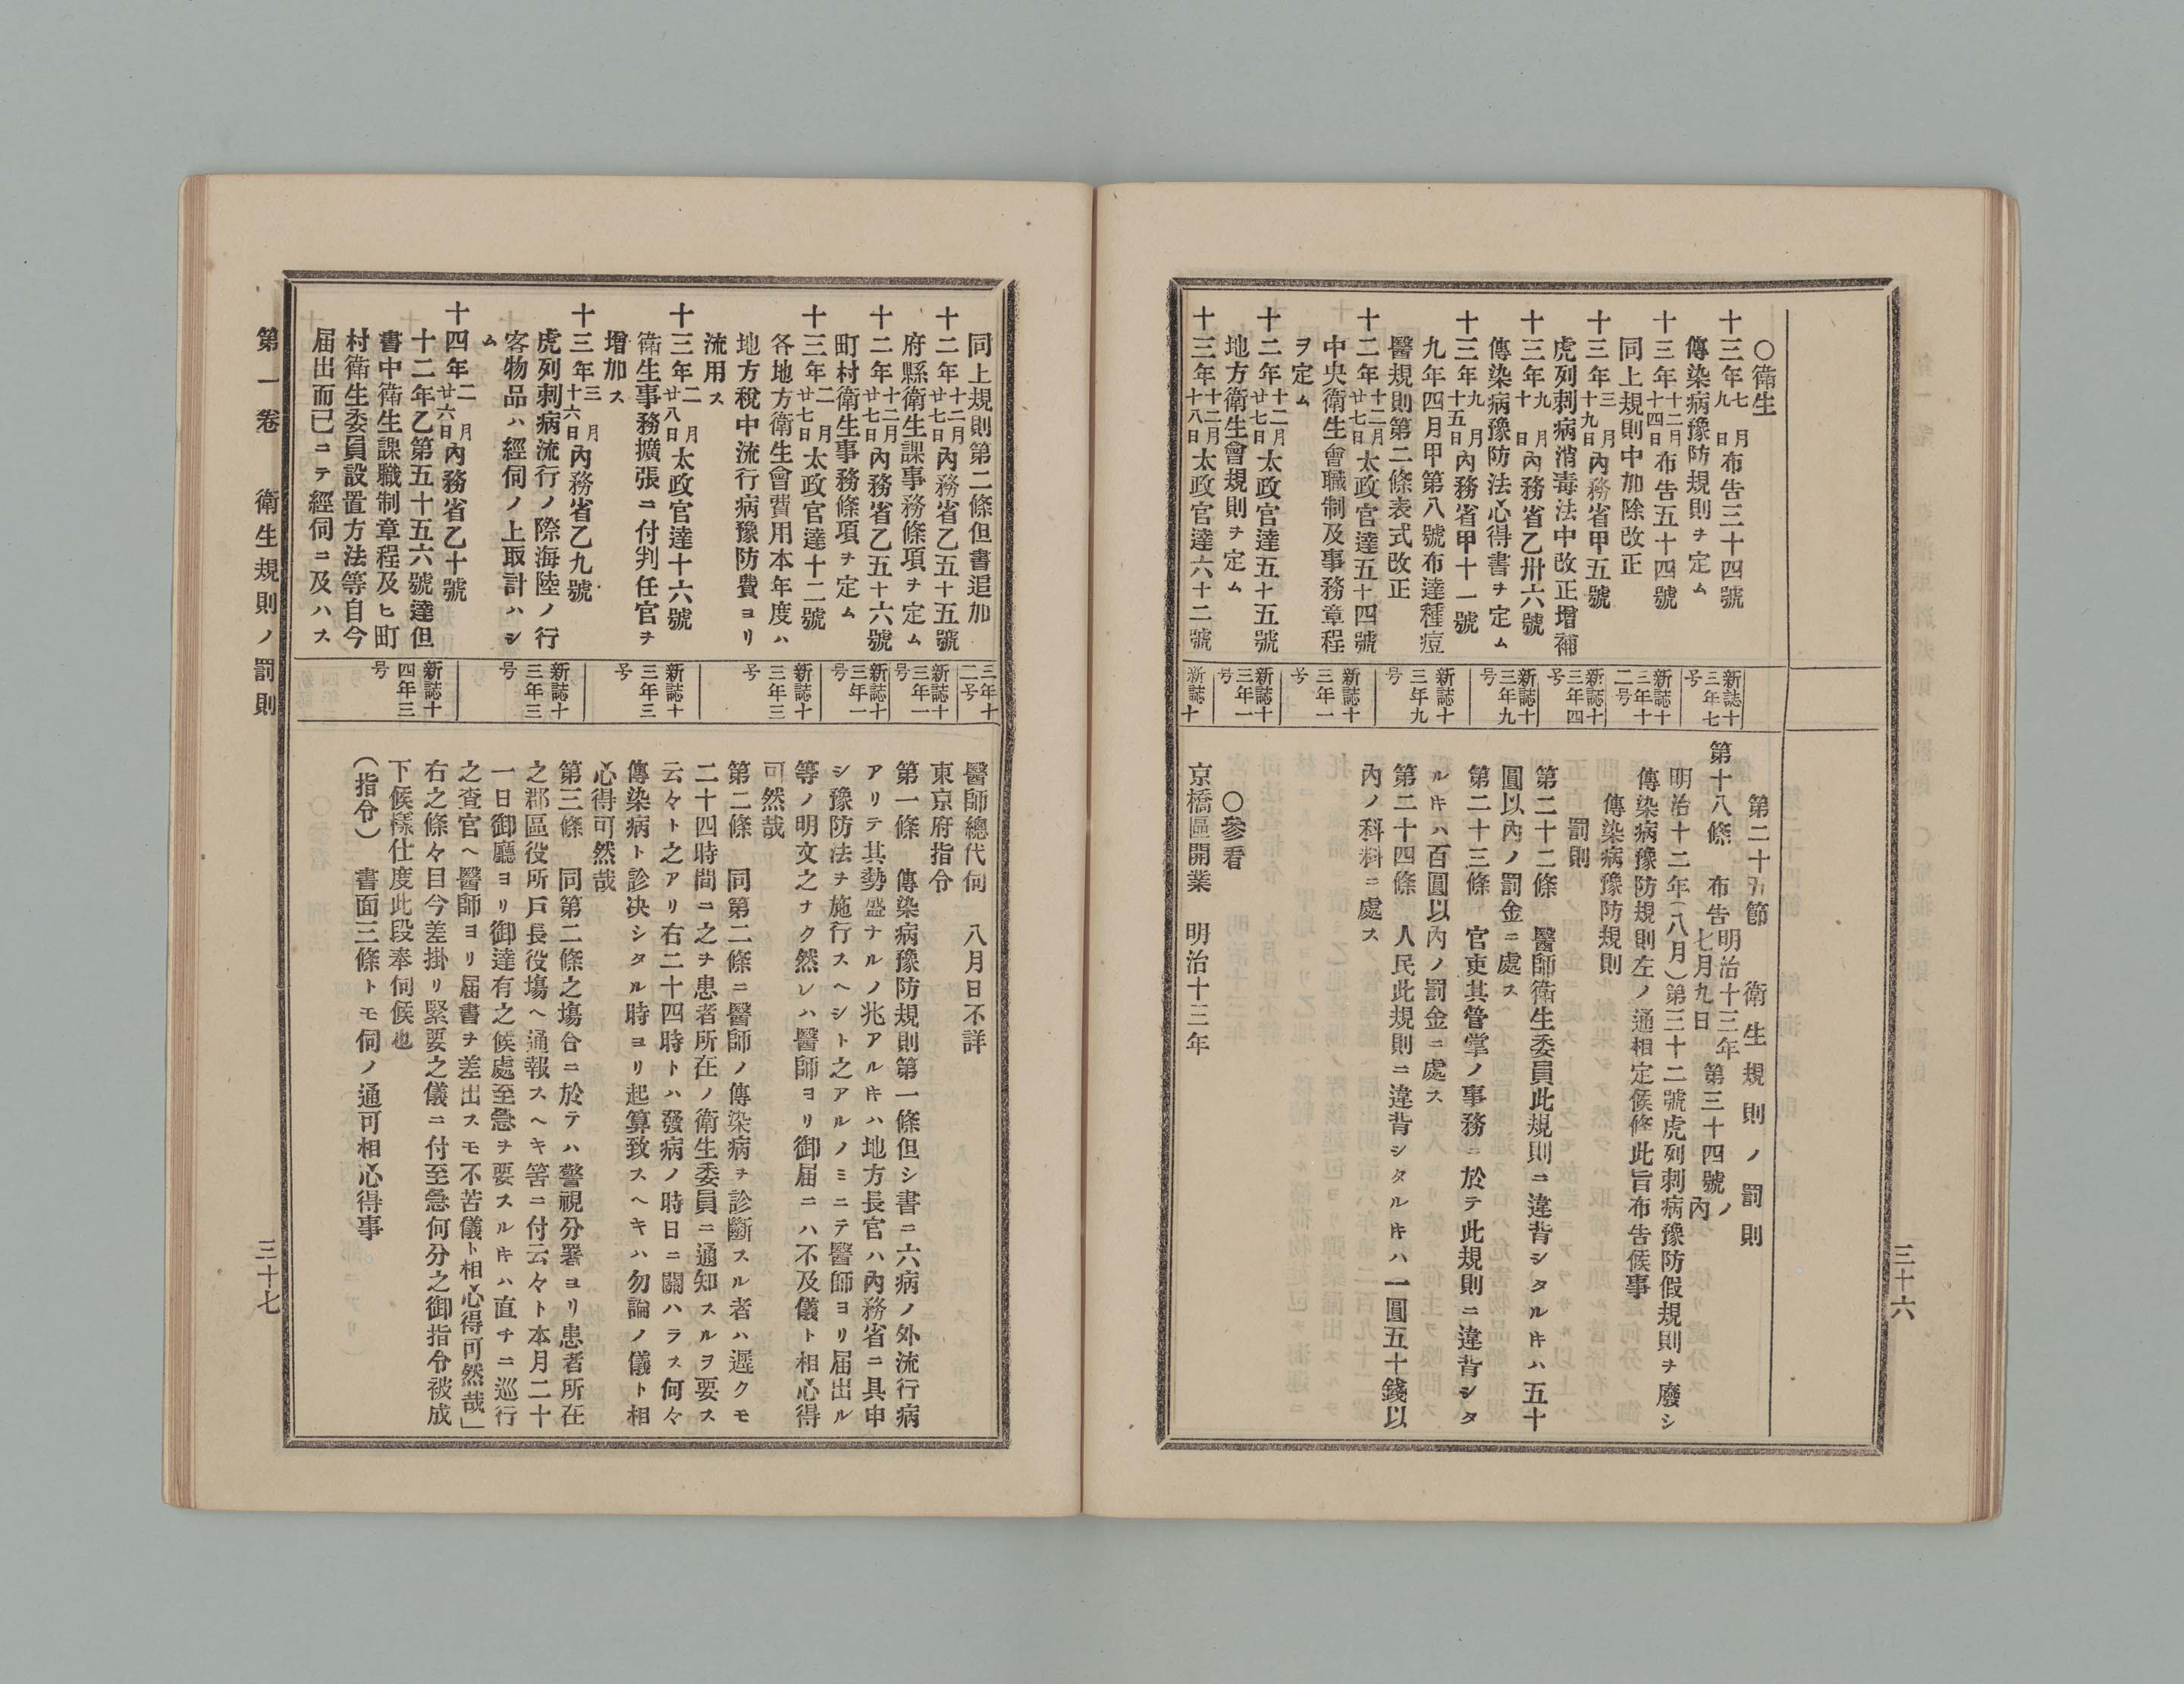 三十六
〇衛生
十三年七月九日布告三十四號
傳染病豫防規則ヲ定ム
十三年十二月十四日布告五十四號
同上規則中加除改正
十三年三月十九日內務省甲五號
虎列刺病消毒法中改正增補
十三年九月十日內務省乙卅六號
傳染病豫防法心得書ヲ定ム
十三年九月十五日內務省甲十一號
九年四月甲第八號布達種痘
醫規則第二條表式改正
十二年十二月廿七日太政官達五十四號
中央衛生會職制及事務章程
ヲ定ム
十二年十二月廿七日太政官達五十五號
地方衛生會規則ヲ定ム
十三年十二月十八日太政官達六十二號
新誌十三年七号
新誌十三年十二号
新誌十三年四号
新誌十三年九号
新誌十三年九号
新誌十三年一号
新誌十三年一号
新誌十
第二十五節　衛生規則ノ罰則
第十八條　布告明治十三年七月九日第三十四號ノ內
明治十二年(八月)第三十二號虎列刺病豫防假規則ヲ廢シ
傳染病豫防規則左ノ通相定候條此旨布告候事
傳染病豫防規則
罰則
第二十二條　醫師衛生委員此規則ニ違背シタルㇳキハ五十
圓以內ノ罰金ニ處ス
第二十三條　官吏其管掌ノ事務ニ於テ此規則ニ違背シタ
ルㇳキハ百圓以內ノ罰金ニ處ス
第二十四條　人民此規則ニ違背シタルㇳキハ一圓五十錢以
內ノ科料ニ處ス
〇參看
京橋區開業　明治十三年
同上規則第二條但書追加
十二年十二月廿七日內務省乙五十五號
府縣衛生課事務條項ヲ定ム
十二年十二月廿七日內務省乙五十六號
町村衛生事務條項ヲ定ム
十三年二月廿七日太政官達十二號
各地方衛生會費用本年度ハ
地方稅中流行病豫防費ヨリ
流用ス
十三年二月廿八日太政官達十六號
衛生事務擴張ニ付判任官ヲ
增加ス
十三年三月十六日內務省乙九號
虎列刺病流行ノ際海陸ノ行
客物品ハ經伺ノ上取計ハシ
ム
十四年二月廿六日內務省乙十號
十二年乙第五十五六號達但
書中衛生課職制章程及ヒ町
村衛生委員設置方法等自今
届出而已ニテ經伺ニ及ハス
三年十二号
新誌十三年一号
新誌十三年一号
新誌十三年三号
新誌十三年三号
新誌十三年三号
新誌十四年三号
醫師總代伺　八月日不詳
東京府指令
第一條　傳染病豫防規則第一條但シ書ニ六病ノ外流行病
アリテ其勢盛ナルノ兆アルㇳキハ地方長官ハ內務省ニ具申
シ豫防法ヲ施行スヘシト之アルノミニテ醫師ヨリ届出ル
等ノ明文之ナク然レハ醫師ヨリ御届ニハ不及儀ト相心得
可然哉
第二條　同第二條ニ醫師ノ傳染病ヲ診斷スル者ハ遲クモ
二十四時間ニ之ヲ患者所在ノ衛生委員ニ通知スルヲ要ス
云々ト之アリ右二十四時トハ發病ノ時日ニ關ハラス何々
傳染病ト診决シタル時ヨリ起算致スヘキハ勿論ノ儀ト相
心得可然哉
第三條　同第二條之塲合ニ於テハ警視分署ヨリ患者所在
之郡區役所戶長役塲ヘ通報スヘキ筈ニ付云々ト本月二十
一日御廳ヨリ御達有之候處至急ヲ要スルㇳキハ直チニ巡行
之査官ヘ醫師ヨリ届書ヲ差出スモ不苦儀ト相心得可然哉」
右之條々目今差掛リ緊要之儀ニ付至急何分之御指令被成
下候樣仕度此段奉伺候也
(指令)　書面三條トモ伺ノ通可相心得事
第一卷　衛生規則ノ罰則
三十七